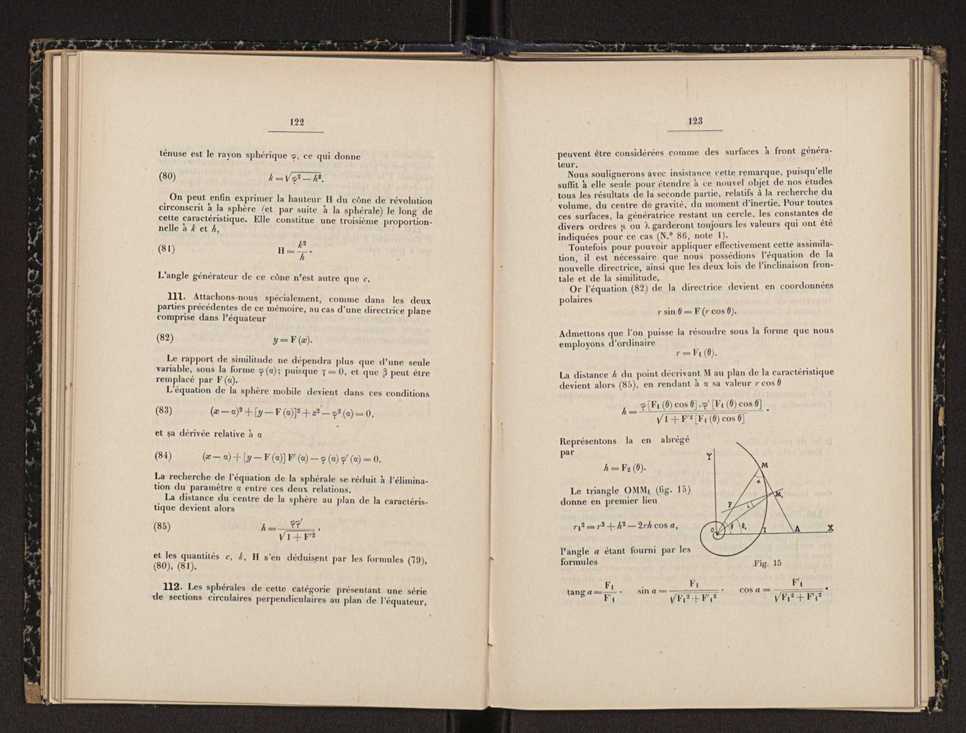 122
ténuse est le rayon sphérique φ, ce qui donne
(80) k = √φ² — h².
On peut enfin exprimer la hauteur H du cône de révolution
circonscrit à la sphère (et par suite à la sphérale) le long de
cette caractéristique. Elle constitue une troisième proportion-
nelle à k et h,
(81) H = k²/h .
L'angle générateur de ce cône n'est autre que c.
111. Attachons-nous spécialement, comme dans les deux
parties précédentes de ce mémoire, au cas d'une directrice plane
comprise dans l'équateur
(82) y = F (x).
Le rapport de similitude ne dépendra plus que d'une seule
variable, sous la forme φ (α); puisque γ = 0, et que β peut être
remplacé par F (α).
L'équation de la sphère mobile devient dans ces conditions
(83) (x — α)² + [y — F (α)]² + z² — φ² (α) = 0,
et sa dérivée relative à α
(84) (x — α) + [y — F (α)] F' (α) — φ (α) φ' (α) = 0.
La recherche de l'équation de la sphérale se réduit à l'élimina-
tion du paramètre α entre ces deux relations.
La distance du centre de la sphère au plan de la caractéris-
tique devient alors
(85) h = φφ' / √1 + F'² ,
et les quantités c, k, H s'en déduisent par les formules (79),
(80), (81).
112. Les sphérales de cette catégorie présentant une série
de sections circulaires perpendiculaires au plan de l'équateur,
123
peuvent être considérées comme des surfaces à front généra-
teur.
Nous soulignerons avec insistance cette remarque, puisqu'elle
suffit à elle seule pour étendre à ce nouvel objet de nos études
tous les résultats de la seconde partie, relatifs à la recherche du
volume, du centre de gravité, du moment d'inertie. Pour toutes
ces surfaces, la génératrice restant un cercle, les constantes de
divers ordres μ ou λ garderont toujours les valeurs qui ont été
indiquées pour ce cas (N.º 86, note 1).
Toutefois pour pouvoir appliquer effectivement cette assimila-
tion, il est nécessaire que nous possédions l'équation de la
nouvelle directrice, ainsi que les deux lois de l'inclinaison fron-
tale et de la similitude.
Or l'équation (82) de la directrice devient en coordonnées
polaires
r sin θ = F (r cos θ).
Admettons que l'on puisse la résoudre sous la forme que nous
employons d'ordinaire
r = F₁ (θ).
La distance h du point décrivant M au plan de la caractéristique
devient alors (85), en rendant à α sa valeur r cos θ
h = φ [F₁ (θ) cos θ] . φ' [F₁ (θ) cos θ] / √1 + F'² [F₁ (θ) cos θ] .
Représentons la en abrégé
par
h = F₂ (θ).
Le triangle OMM₁ (fig. 15)
donne en premier lieu
r₁² = r² + h² — 2rh cos α,
l'angle α étant fourni par les
formules
Y M α M₁ F O θ θ₁ I A X
Fig. 15
tang α = F₁/F'₁ , sin α = F₁ / √F₁² + F'₁² , cos α = F'₁ / √F₁² + F'₁² .